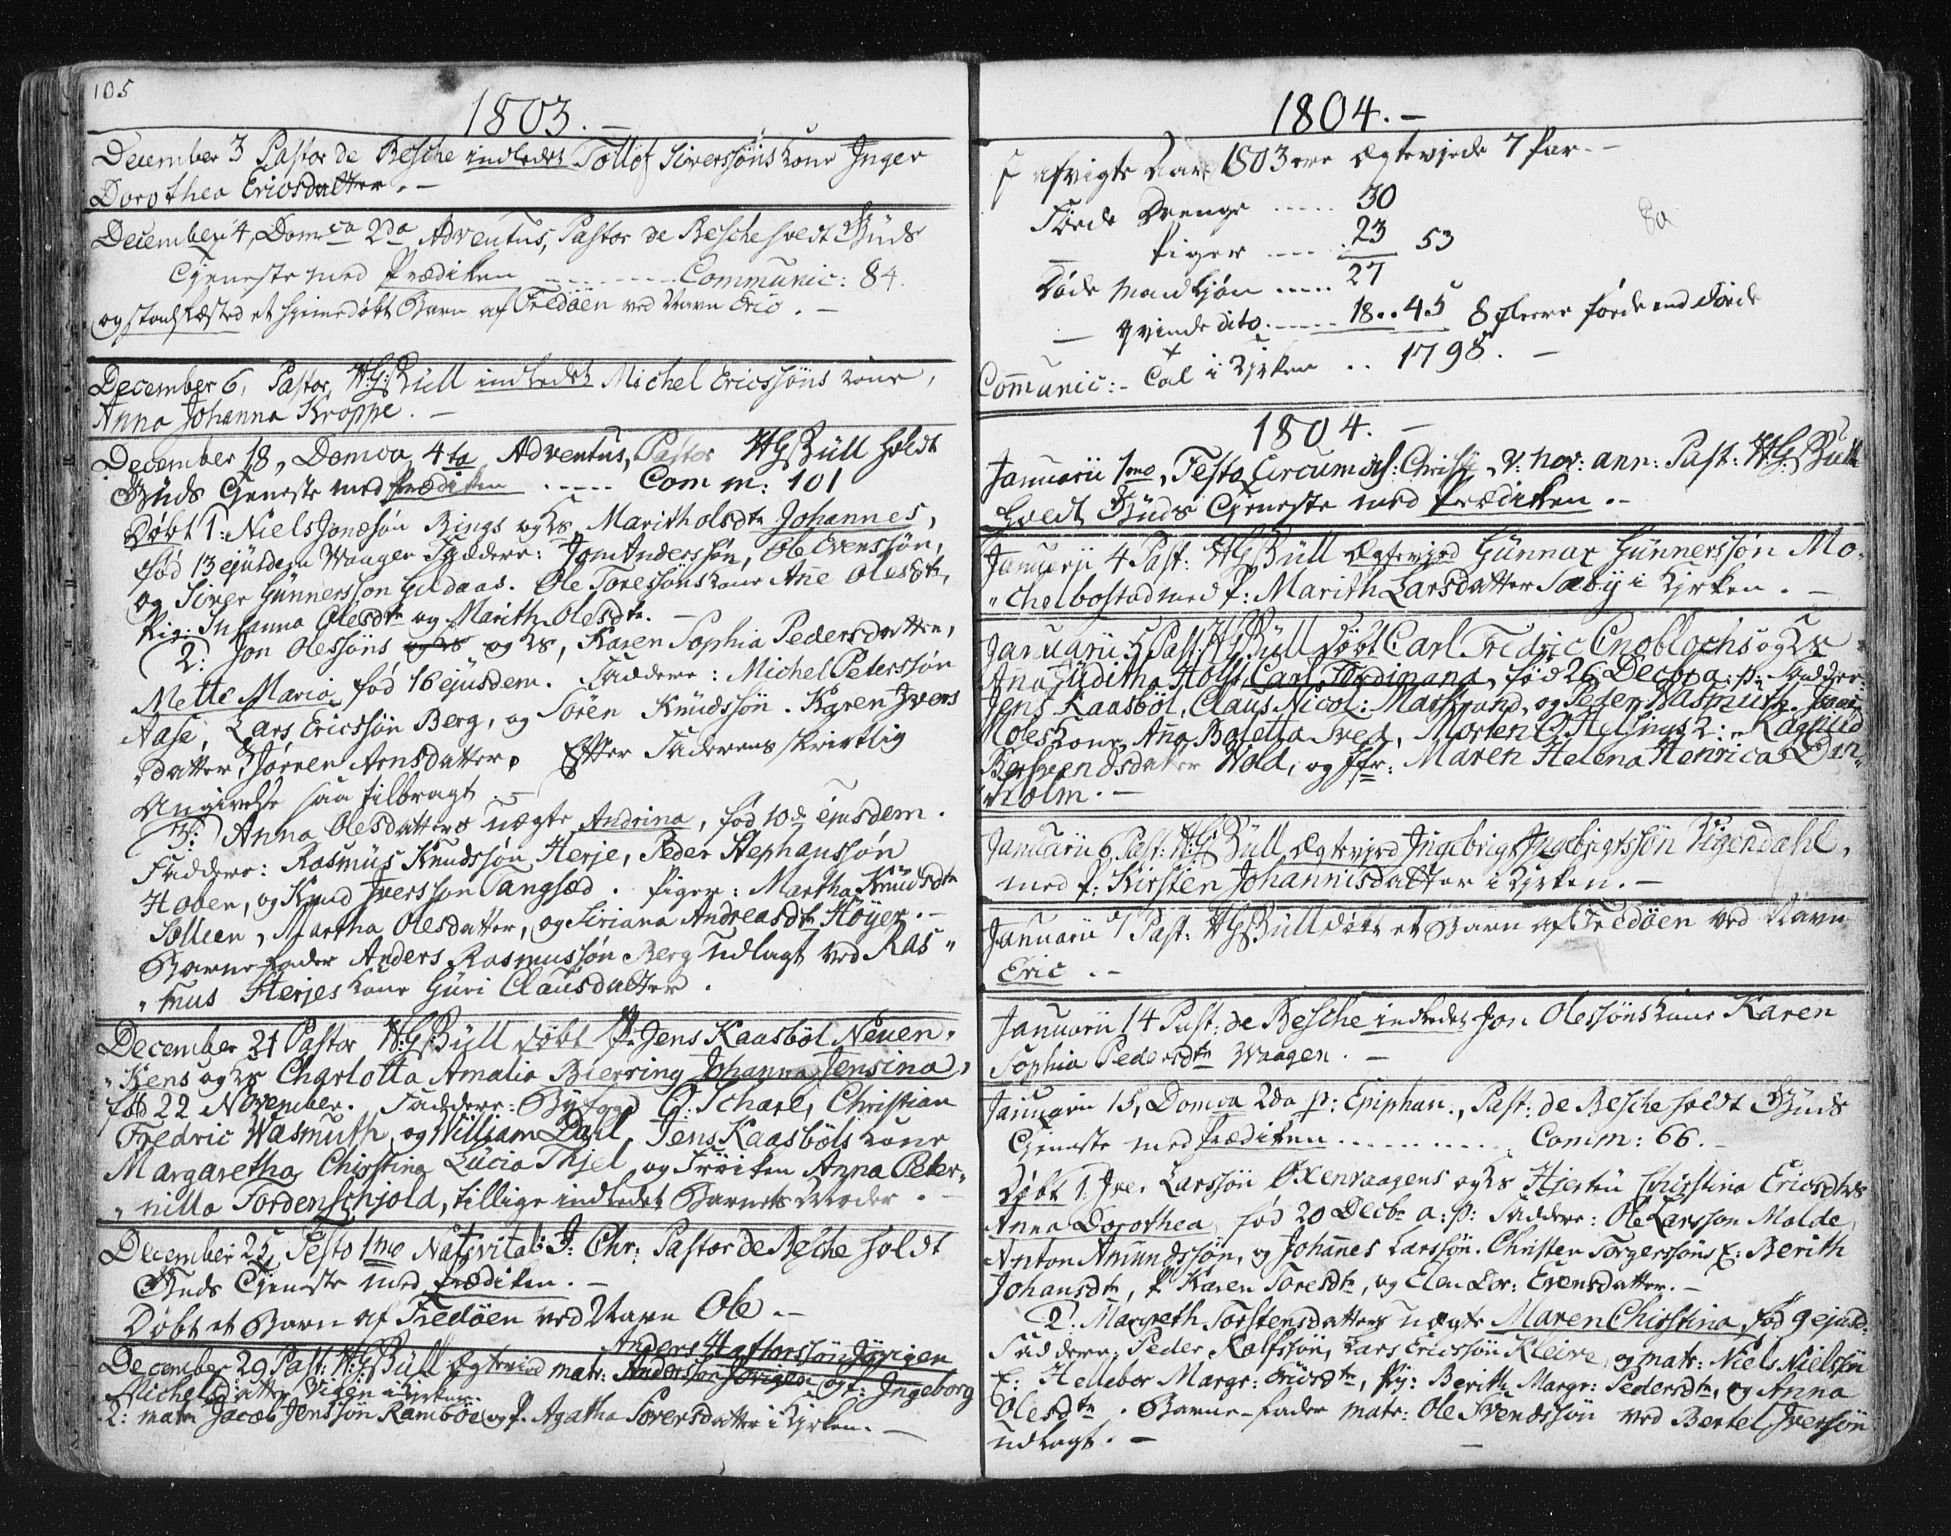 105
1803. -
December 3 Pastor de Besche indledet Tollof Siverssøns kone Inger
Dorothea Ericsdatter. -
December 4, Domca 2da Adventus, Pastor de Besche holdt Guds
Tjeneste med Prædiken ........ Communic: 84.
og stadfæsted et hjemedøbt Barn af Fredøen ved Navn Eric. -
December 6, Pastor H:G: Büll indledet Michel Ericssøns kone,
Anna Johanna Kroppe. -
December 18, Domca 4ta Adventus, Pastor HG Büll holdt
Guds Tjeneste med Prædiken ..... Comm: 101
Døbt 1: Niels Jonssøn Rings og Ks Marith Olsdtr Johannes,
fød 13 ejusdem Waagen Faddere: Jon Anderssøn, Ole Evenssøn,
og Siver Günnerssøn Gildaas. Ole Toressøns kone Añe Olesdtr,
Pig: Susanna Olesdtr og Marith Olesdtr. -
2: Jon Olessøns og Ks, Karen Sophia Pedersdatter,
Mette Maria fød 16 ejusdem. Faddere: Michel Peterssøn
Aase, Lars Ericssøn Berg, og Sören Knüdssøn. Karen Ivers
datter, Jørren Arnsdatter. Efter Faderens skrivtlig
Angivelse saa tilbragt. -
3: Anna Olesdatters uægte Andrina, fød 10de ejusdem.
Faddere: Rasmus Knudssøn Herje, Peder Stephanssøn
Hoben, og Knud Iverssøn Tangsæd. Piger: Martha Knüdsdtr
Sollien, Martha Olesdatter, og Siriana Andreasdtr Höyer. -
Barnefader Anders Rasmussøn Berg udlagt ved Ras-
"mus Herjes kone Guri Clausdatter.
December 21 Pastor H:G Büll døbt Hr. Jens Kaasböl Neuen-
"Kens og Ks Charlotta Amalia Bierring Johanna Jensina,
fød 22 November. Faddere: Byfogd G: Schare, Christian
Fredric Wasmuth, og William Dahl, Jens Kaasböls kone
Margaretha Christina Lucia Thjel og Frøiken Anna Peter-
"nilla Tordenschjold, tillige indledet Barnets Moder. -
December 25, Festo 1mo Nativitat: J: Chr: Pastor de Besche holdt
Guds Tjeneste med Prædiken. -
Døbt et Barn af Fredøen ved Navn Ole. -
Anders Hafthorssøn Jørigen
December 29 Past: H:G Büll Egteviede matr: Anderssøn Jörigen og f: Ingeborg
Michelsdatter Viken i Kirken.
2: matr: Jacob Jenssøn Ramböe og P. Agatha Sörensdatter i Kirken. -
1804. -
I afvigte Aar 1803 ere Egteviede 7 Par. -
Fødte Drenge ..... 30
— Piger ..... 23 53
Døde Mandkjøn ..... 27
— Qvinde dito ..... 18..45 8 fleere fødde end døde
Communic: - Tal i Kirken .. 1798. -
1804. -
Januarii 1mo, Festo Circumcis: Christi, v: nov: ann: Past: HG: Büll
holdt Guds Tjeneste med Prædiken. -
Januarii 4 Past: HG Büll Egteviede Günnar Günnerssøn Mo-
"chelbostad med P: Marith Larsdatter Sæby i Kirken. -
Januarii 5 Past: HG Büll døbt Carl Fredric Cnoblochs og Ks
Ana Juditha Holst, Carl Ferdinand, fød 26 Decbr a: p: Fadder:
Jens Kaasböl, Claus Nicol: Maschrand, og Peder Wasmuth.
Moles kone, Aña Boletta Sved, Morten Helsings k: Ragnild
Berseendsdatter Wold, og Jfr: Maren Helena Henrica Din-
"holm. -
Januarii 6, Past: H:G: Büll Egteviede Ingebrigt Ingebrigtssøn Vigendahl,
med P: Kirsten Johannisdatter i Kirken. -
Januarii 7 Past: HG Büll døbt et Barn af Fredöen ved Navn
Eric. -
Januarii 14 Past: de Besche indledet Jon Olessøns kone Karen
Sophia Pedersdtr Waagen. -
Januarii 15, Domca 2da p: Epiphan., Past: de Besche holdt Guds
Tjeneste med Prædiken ............ Comm: 66.
Døbt 1: Iver Larssøn Øxenvaagens og Ks Hjertü Christina Ericsdtrs
Anna Dorothea, fød 20 Decbr a: p: Faddere: Ole Larsson Molde,
Anton Amundssøn, og Johannes Larssøn. Christen Torgerssøns k: Berith
Johansdtr, P Karen Toresdtr, og Elen Dor: Evensdatter. -
2. Margreth Torstensdatters uægte Maren Christina, fød 9 ejusd:
Faddere: Peder Rolfssøn, Lars Ericssøn Kleive, og matr: Niels Nielssøn
k: Hellebor Margr: Ericsdtr, Pig: Berith Margr: Pedersdtr, og Anna
Olesdtr. Barne-fader matr: Ole Svendssøn ved Bertel Iverssøn
udlagt. -